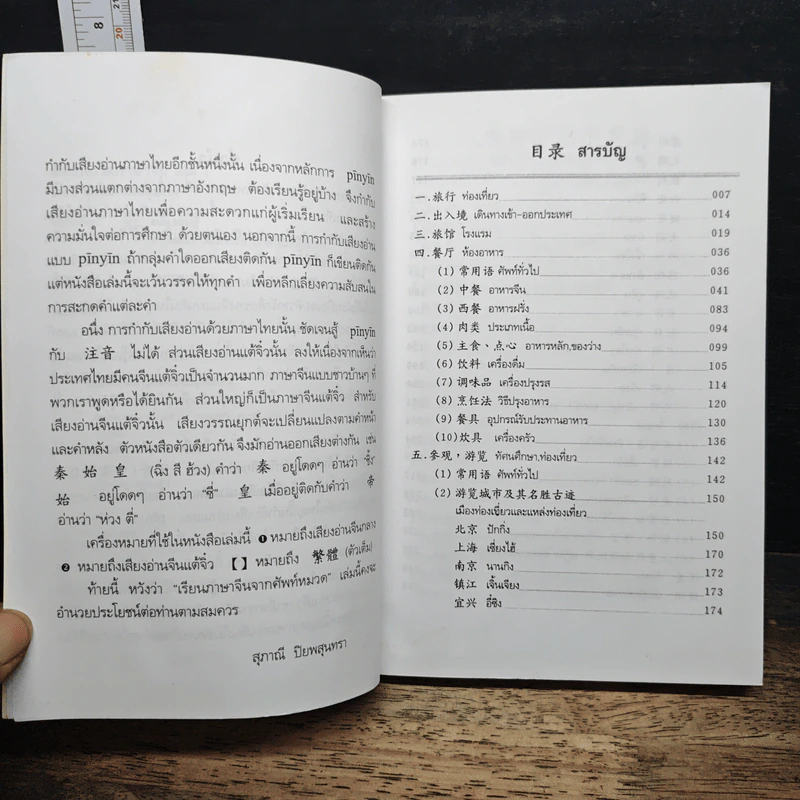 8
21
20
กำกับเสียงอ่านภาษาไทยอีกชั้นหนึ่งนั้น เนื่องจากหลักการ pīnyīn
มีบางส่วนแตกต่างจากภาษาอังกฤษ ต้องเรียนรู้อยู่บ้าง จึงกำกับ
เสียงอ่านภาษาไทยเพื่อความสะดวกแก่ผู้เริ่มเรียน และสร้าง
ความมั่นใจต่อการศึกษา ด้วยตนเอง นอกจากนี้ การกำกับเสียงอ่าน
แบบ pīnyīn ถ้ากลุ่มคำใดออกเสียงติดกัน pīnyīn ก็เขียนติดกัน
แต่หนังสือเล่มนี้จะเว้นวรรคให้ทุกคำ เพื่อหลีกเลี่ยงความสับสนใน
การสะกดคำแต่ละคำ
อนึ่ง การกำกับเสียงอ่านด้วยภาษาไทยนั้น ชัดเจนสู้ pīnyīn
กับ 注音 ไม่ได้ ส่วนเสียงอ่านแต้จิ๋วนั้น ลงให้เนื่องจากเห็นว่า
ประเทศไทยมีคนจีนแต้จิ๋วเป็นจำนวนมาก ภาษาจีนแบบชาวบ้านๆ ที่
พวกเราพูดหรือได้ยินกัน ส่วนใหญ่ก็เป็นภาษาจีนแต้จิ๋ว สำหรับ
เสียงอ่านจีนแต้จิ๋วนั้น เสียงวรรณยุกต์จะเปลี่ยนแปลงตามคำหน้า
และคำหลัง ตัวหนังสือตัวเดียวกัน จึงมักอ่านออกเสียงต่างกัน เช่น
秦 始 皇 (ฉิ่ง สี ฮ้วง) คำว่า 秦 อยู่โดดๆ อ่านว่า "ชิ้ง"
始 อยู่โดดๆ อ่านว่า "ซี่" 皇 เมื่ออยู่ติดกับคำว่า 帝
อ่านว่า "ห่วง ตี่"
เครื่องหมายที่ใช้ในหนังสือเล่มนี้ ❶ หมายถึงเสียงอ่านจีนกลาง
❷ หมายถึงเสียงอ่านจีนแต้จิ๋ว 【】 หมายถึง 繁體 (ตัวเต็ม)
ท้ายนี้ หวังว่า "เรียนภาษาจีนจากศัพท์หมวด" เล่มนี้คงจะ
อำนวยประโยชน์ต่อท่านตามสมควร
สุภาณี ปิยพสุนทรา
目录 สารบัญ
一.旅行 ท่องเที่ยว 007
二.出入境 เดินทางเข้า-ออกประเทศ 014
三.旅馆 โรงแรม 019
四.餐厅 ห้องอาหาร 036
(1) 常用语 ศัพท์ทั่วไป 036
(2) 中餐 อาหารจีน 041
(3) 西餐 อาหารฝรั่ง 083
(4) 肉类 ประเภทเนื้อ 094
(5) 主食、点心 อาหารหลัก,ของว่าง 099
(6) 饮料 เครื่องดื่ม 105
(7) 调味品 เครื่องปรุงรส 114
(8) 烹饪法 วิธีปรุงอาหาร 120
(9) 餐具 อุปกรณ์รับประทานอาหาร 130
(10) 炊具 เครื่องครัว 136
五.参观，游览 ทัศนศึกษา,ท่องเที่ยว 142
(1) 常用语 ศัพท์ทั่วไป 142
(2) 游览城市及其名胜古迹 150
เมืองท่องเที่ยวและแหล่งท่องเที่ยว
北京 ปักกิ่ง 150
上海 เซี่ยงไฮ้ 170
南京 นานกิง 172
镇江 เจิ้นเจียง 173
宜兴 อี๋ซิง 174